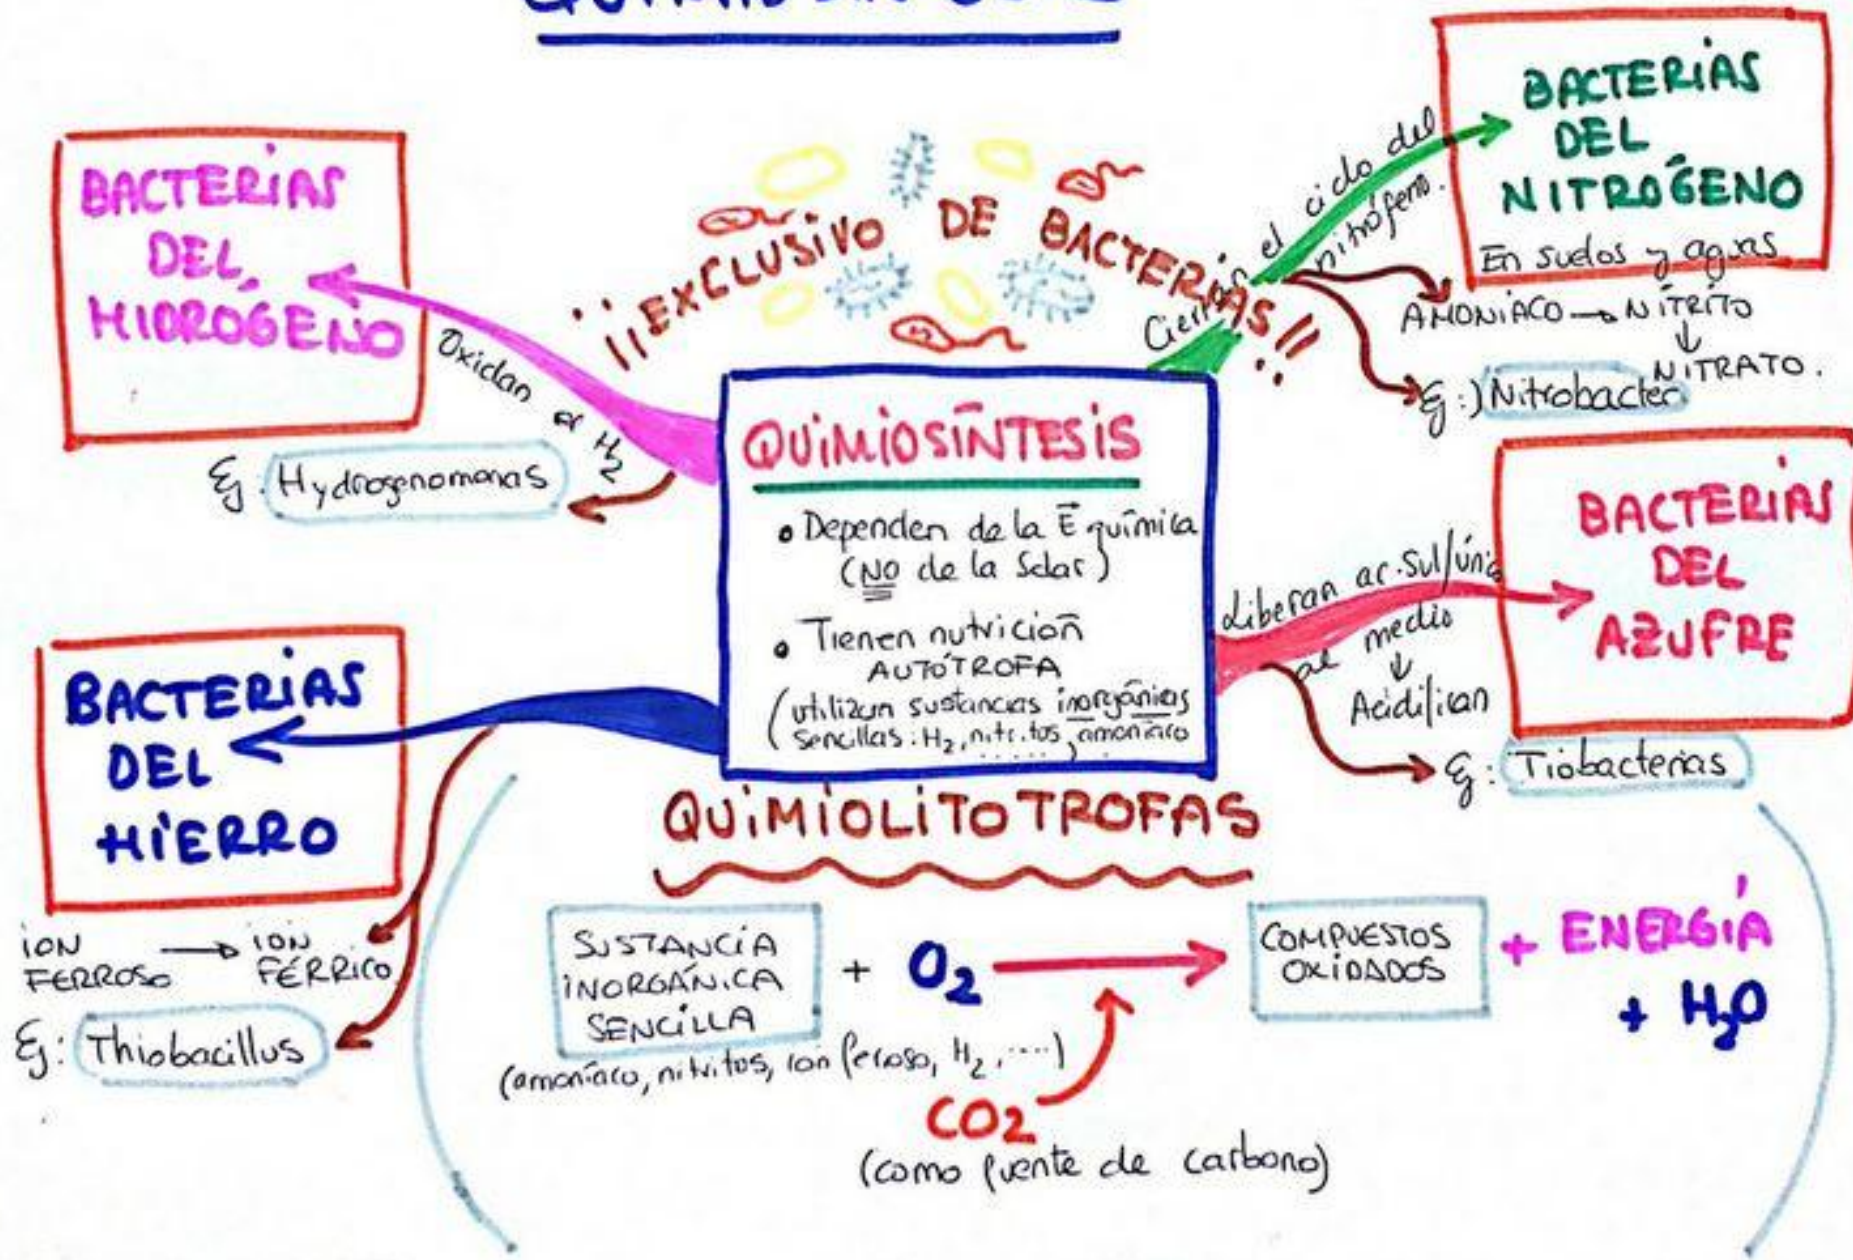 BACTERIAS
DEL
HIDRÓGENO
Oxidan al H2
Ej: Hydrogenomonas
¡¡EXCLUSIVO DE BACTERIAS!!
Cierran el ciclo del
nitrógeno.
BACTERIAS
DEL
NITRÓGENO
En suelos y aguas
AMONÍACO → NITRITO
↓
NITRATO.
Ej:) Nitrobacter
QUIMIOSÍNTESIS
• Dependen de la E química
(NO de la Solar)
• Tienen nutrición
AUTÓTROFA
(utilizan sustancias inorgánicas
sencillas: H2, nitritos, amoníaco
.....)
Liberan ac. sulfúrico
al medio
↓
Acidifican
BACTERIAS
DEL
AZUFRE
Ej: Tiobacterias
BACTERIAS
DEL
HIERRO
ION FERROSO → ION FÉRRICO
Ej: Thiobacillus
QUIMIOLITOTROFAS
SUSTANCIA
INORGÁNICA
SENCILLA
+ O2 →
COMPUESTOS
OXIDADOS
+ ENERGÍA
+ H2O
(amoníaco, nitritos, ion ferroso, H2, ....)
CO2
(como fuente de carbono)